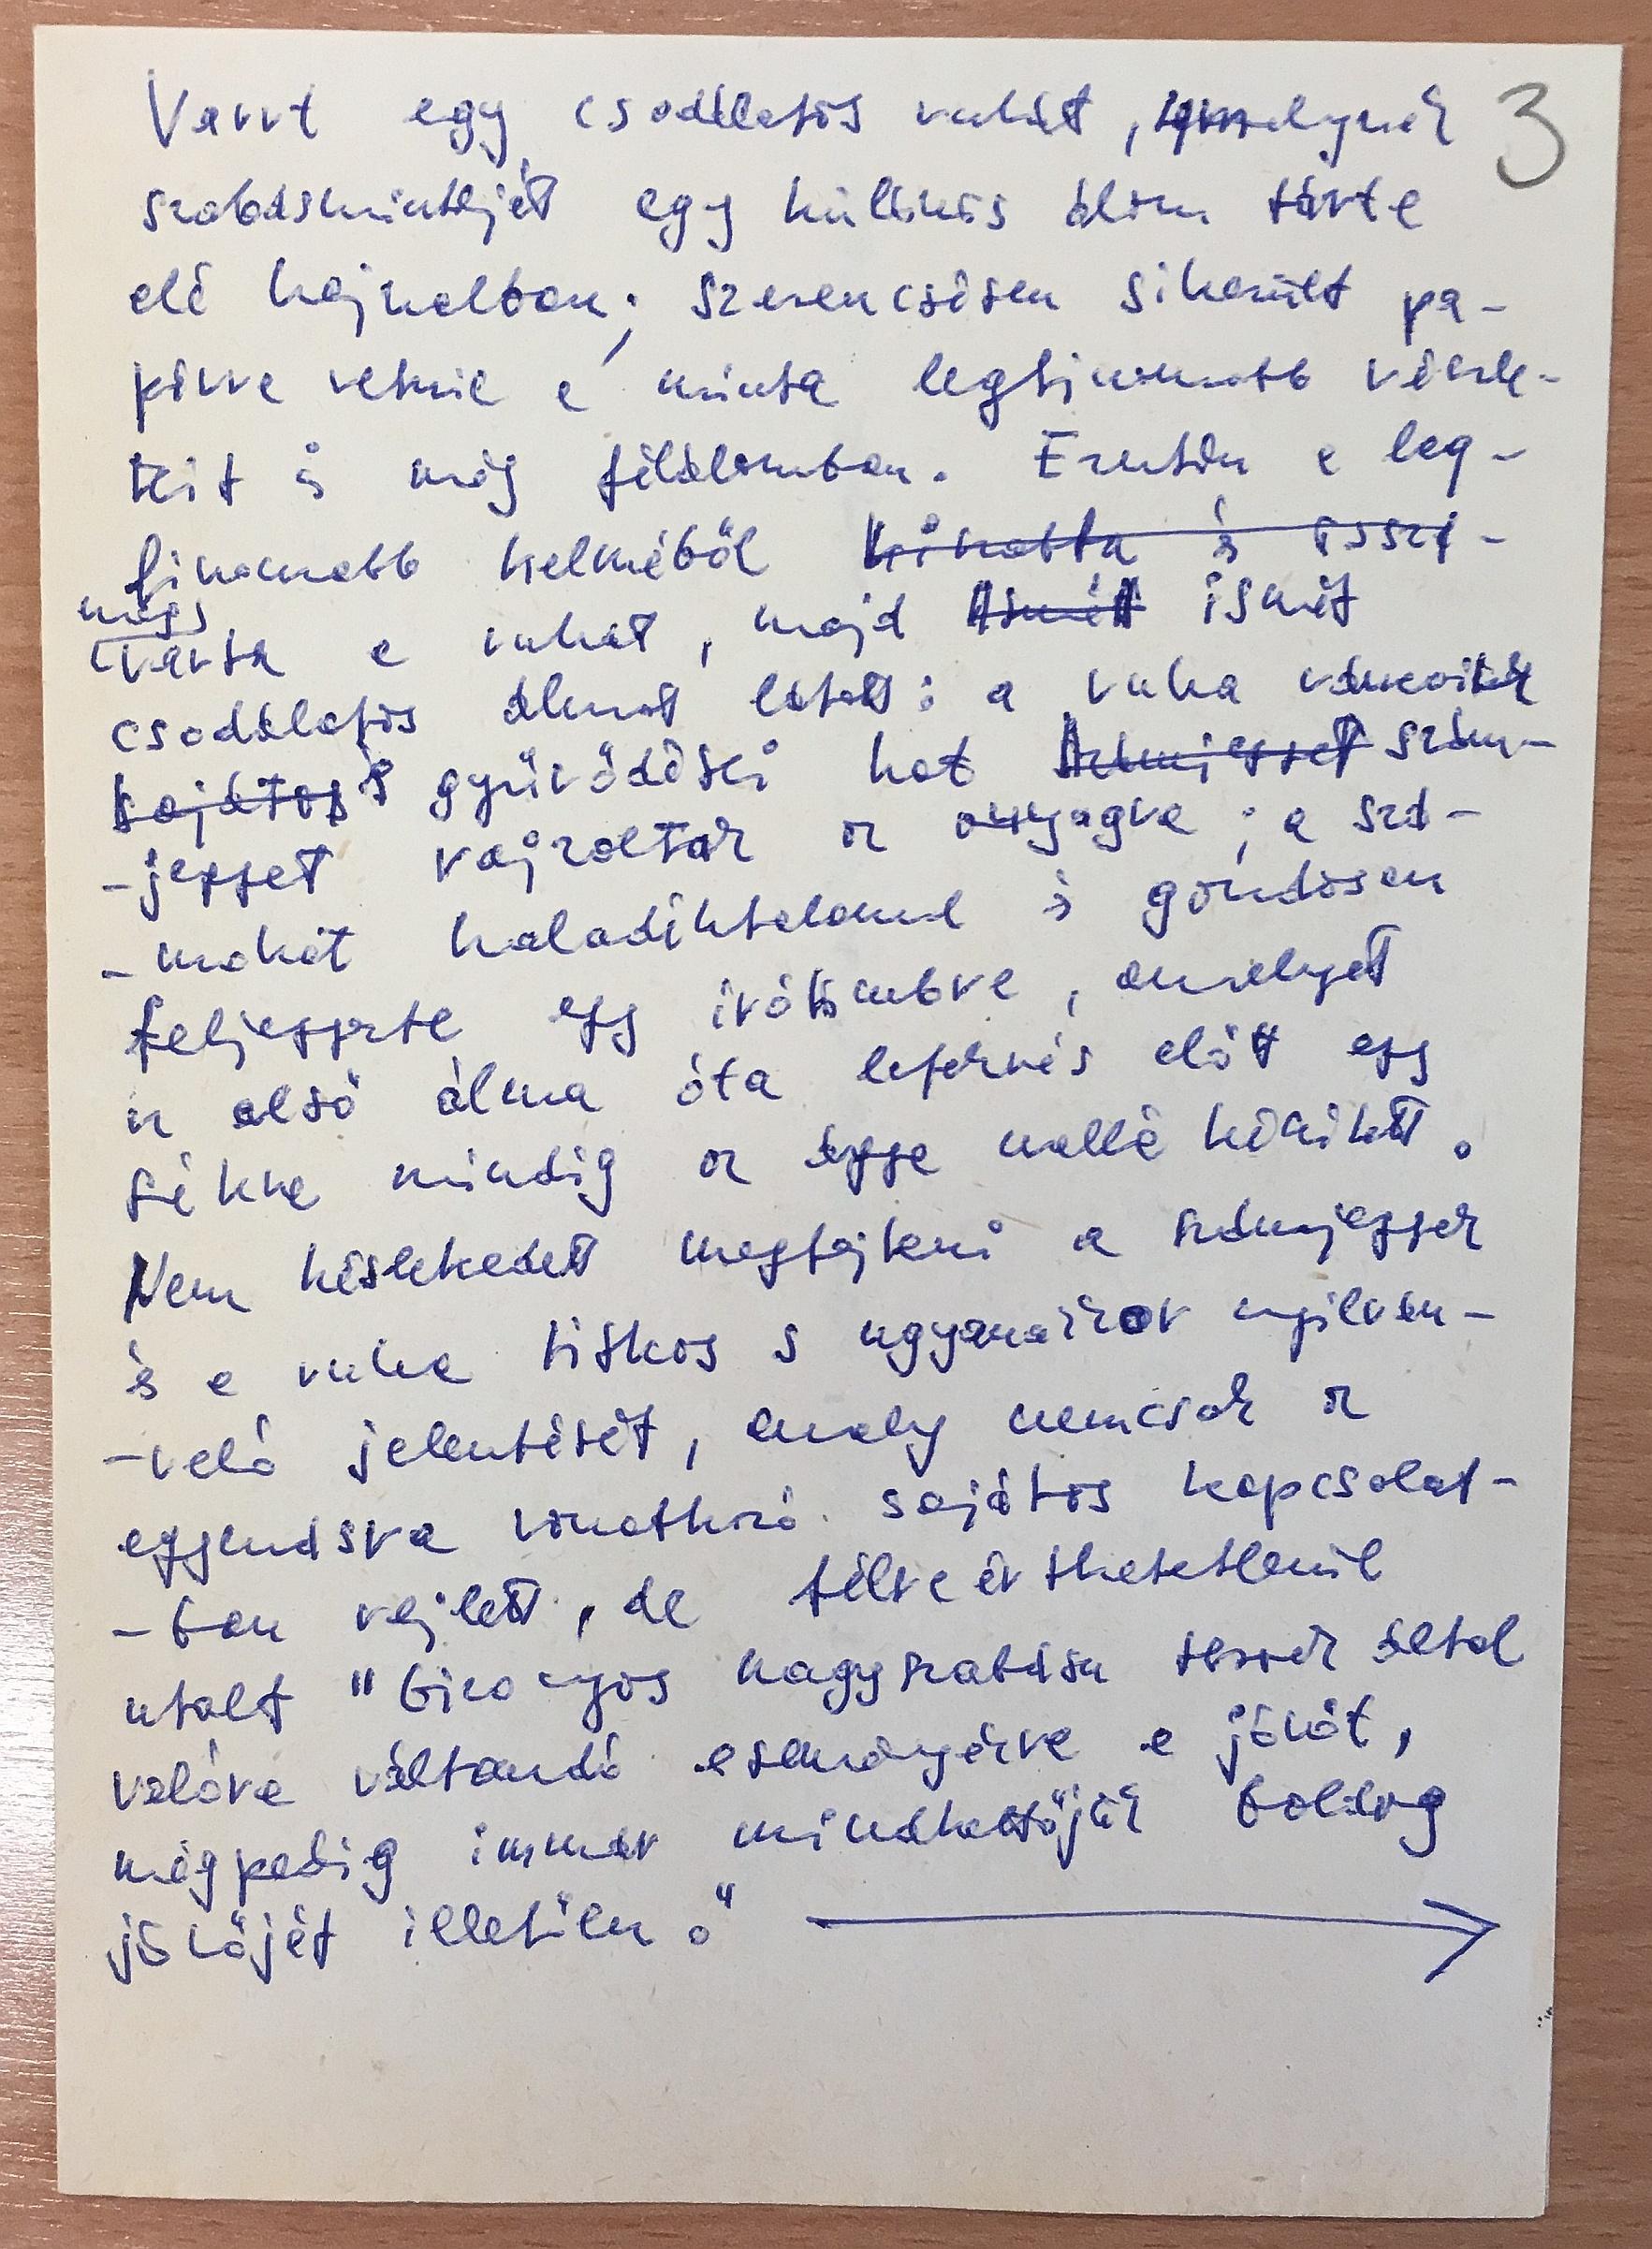 Varrt egy csodálatos ruhát, amelynek 3
szabásmintáját egy különös álom tárta
elé hajnalban; szerencsésen sikerült pa-
pírra vetnie a minta legfinomabb részle-
teit is még félálomban. Ezután a leg-
finomabb kelméből kihabta és össze-
meg
varrta a ruhát, majd ismét ismét
csodálatos álmot látott: a ruha ráncait
sajátos s gyűrődései hat számjegyet szám-
-jegyet rajzoltak az anyagra; a szá-
-mokat haladéktalanul és gondosan
feljegyezte egy irótömbre, amelyet
az első álma óta lefekvés előtt egy
székre mindig az ágya mellé készített.
Nem késlekedett megfejteni a számjegyek
és a ruha titkos s ugyanakkor nyilván-
-való jelentését, amely nemcsak az
egymásra vonatkozó sajátos kapcsolat-
-ban rejlett, de félreérthetetlenül
utalt "bizonyos nagyszabású terveik által
valóra váltandó eseményekre a jövőt,
mégpedig immár mindkettőjük boldog
jövőjét illetően."